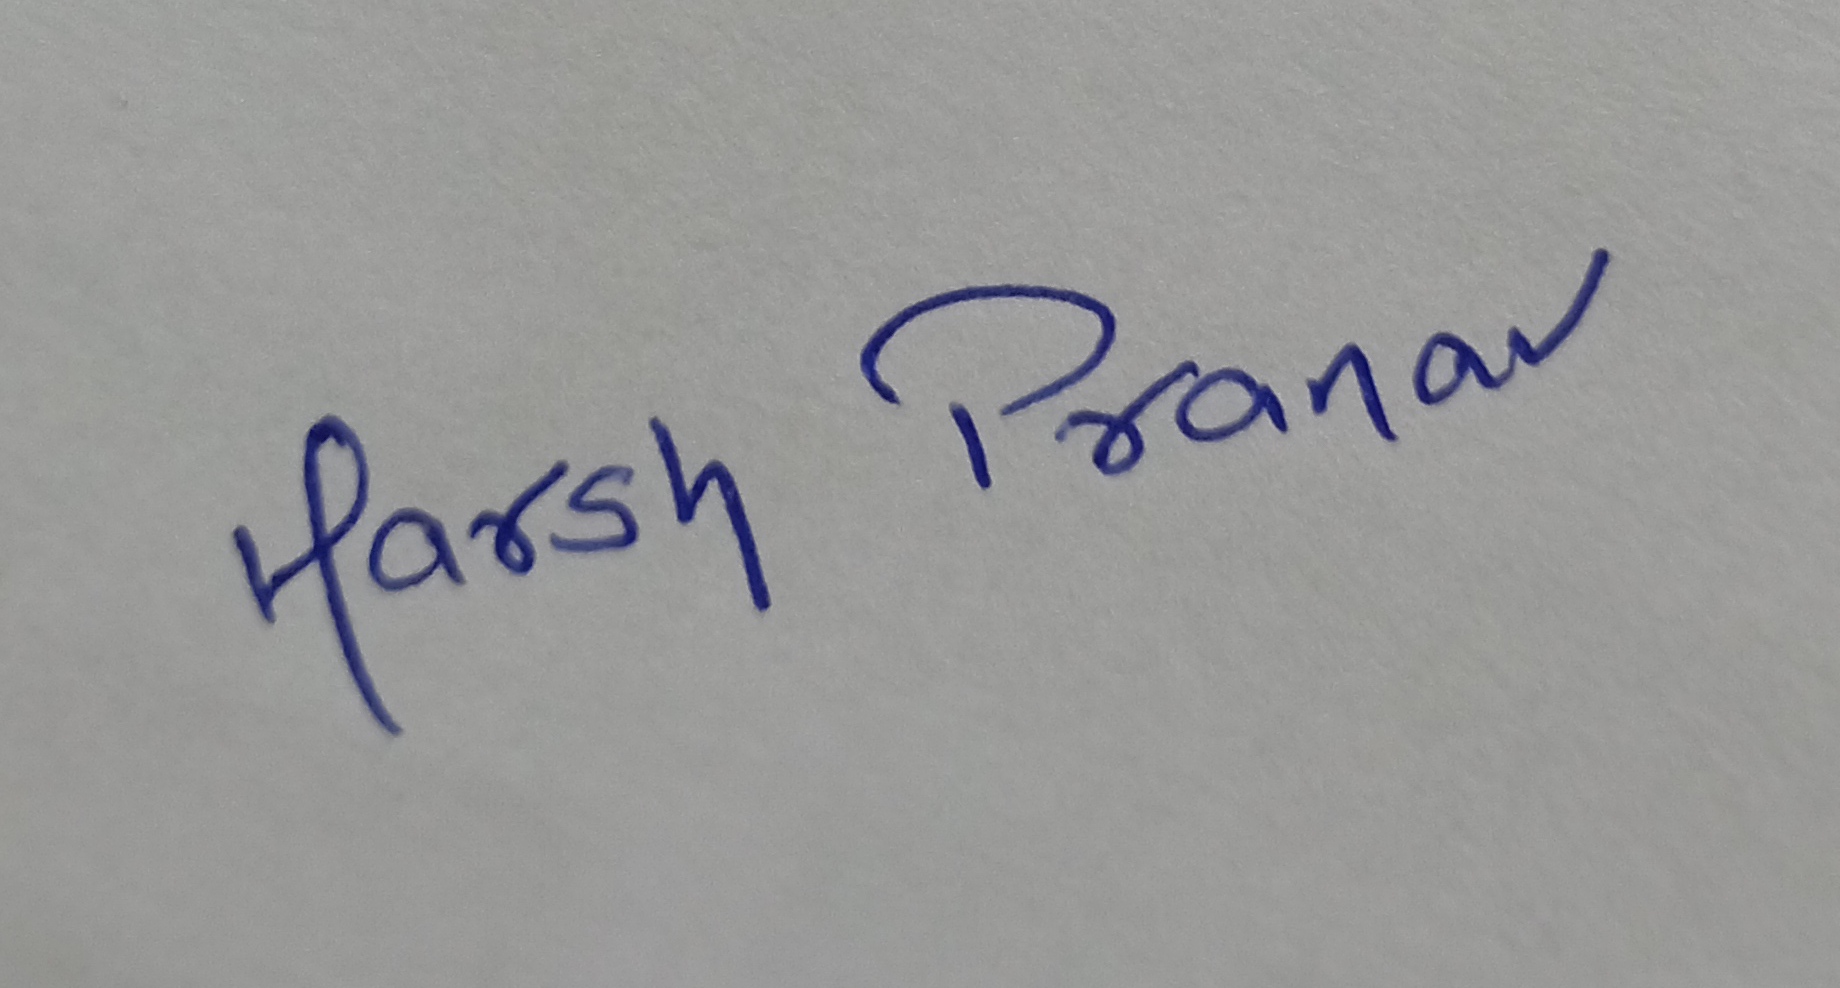 Harsh Pranav